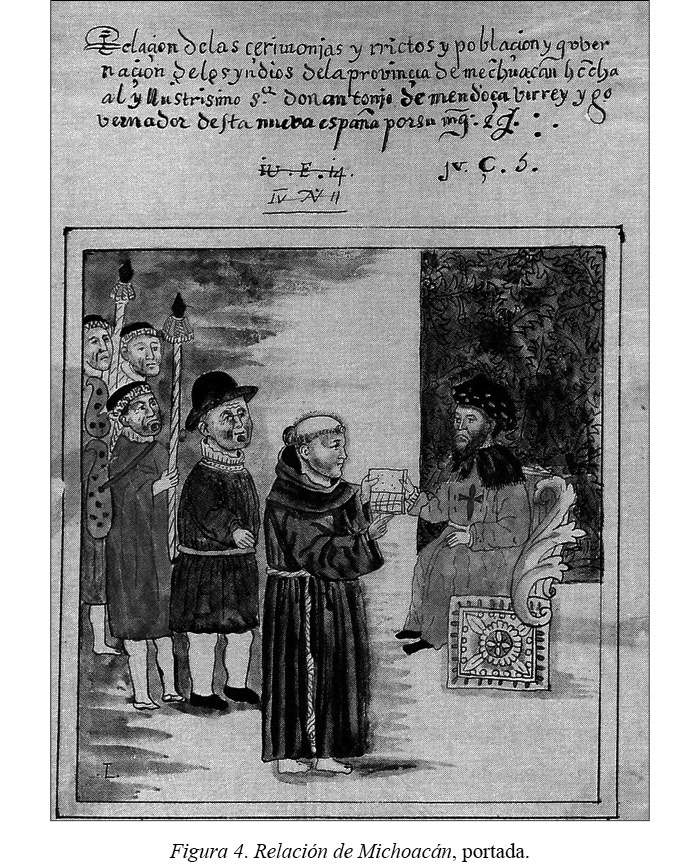 Relaçion delas cerimonjas y rrictos y poblaçion y gover
naçion delos yndios dela provincia de mechuacan hecha
al yllustrisimo s.or don antonjo de mendoça virrey y go
vernador desta nueva españa por su mg.
jV. Ç. 5.
L
Figura 4. Relación de Michoacán, portada.